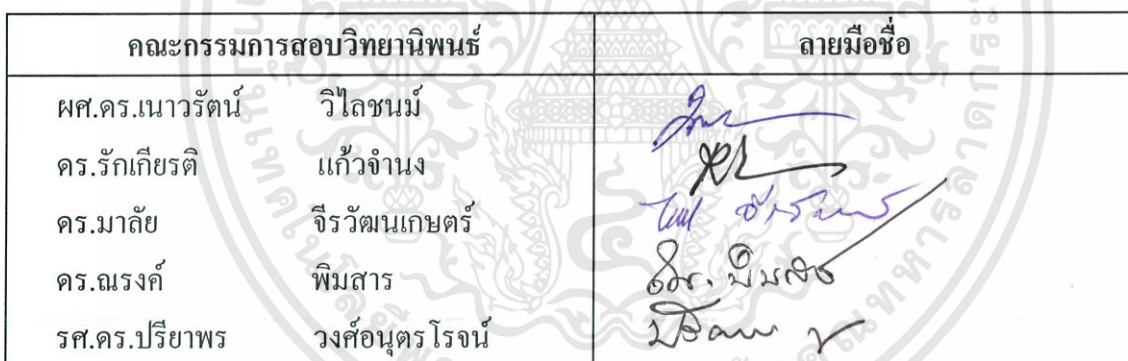 คณะกรรมการสอบวิทยานิพนธ์ ลายมือชื่อ
ผศ.ดร.เนาวรัตน์ วิไลชนม์
ดร.รักเกียรติ แก้วจำนง
ดร.มาลัย จีรวัฒนเกษตร์
ดร.ณรงค์ พิมสาร
รศ.ดร.ปรียาพร วงศ์อนุตรโรจน์